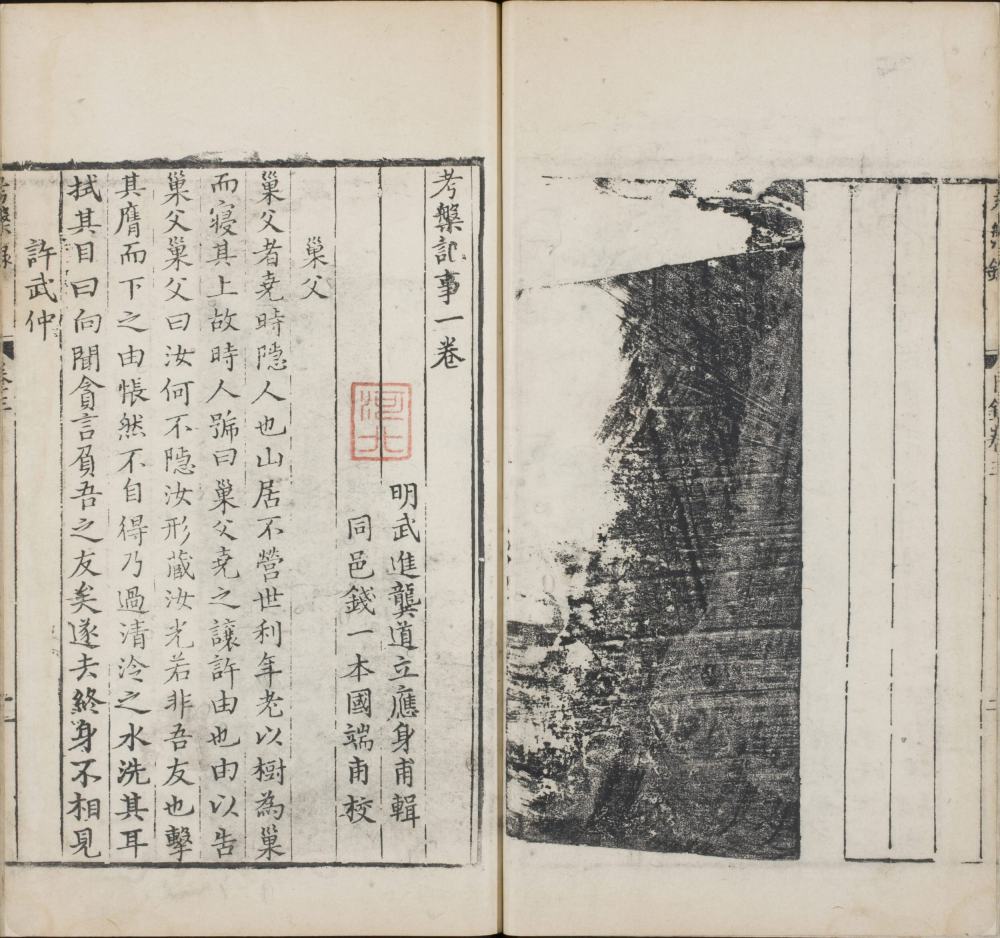 目錄卷三
二
考槃記事一卷
明武進龔道立應身甫輯
同邑錢一本國端甫校
巢父
巢父者堯時隱人也山居不營世利年老以樹為巢
而寢其上故時人號曰巢父堯之讓許由也由以告
巢父巢父曰汝何不隱汝形藏汝光若非吾友也擊
其膺而下之由悵然不自得乃過清泠之水洗其耳
拭其目曰向聞貪言負吾之友矣遂去終身不相見
許武仲
考槃錄
卷三
一